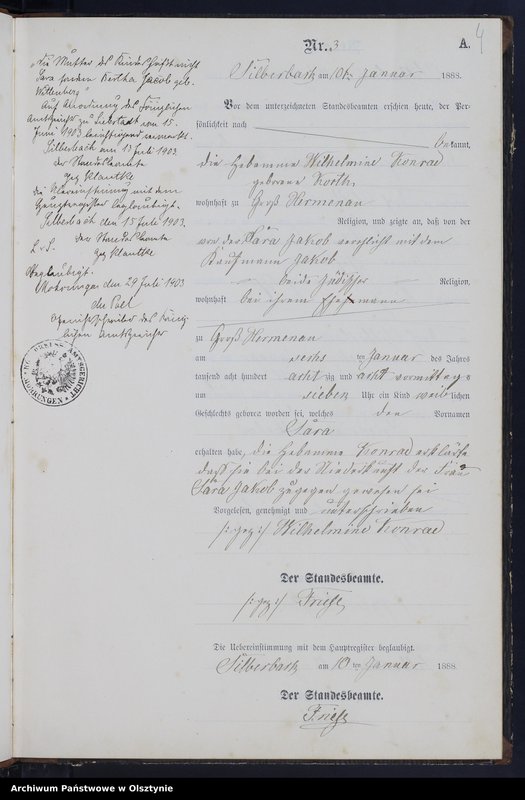 Nr. 3
A.
4
Silberbach am 10ten Januar 1888.
Vor dem unterzeichneten Standesbeamten erschien heute, der Per-
sönlichkeit nach
bekannt,
die Hebamme Wilhelmine Konrad
geborene
wohnhaft zu Groß Hermenau
Religion, und zeigte an, daß von der
von der Sara Jakob verehlicht mit dem
Kaufmann Jakob
beide jüdischer Religion,
wohnhaft bei ihrem Ehemanne
zu Groß Hermenau
am sechs ten Januar des Jahres
tausend acht hundert acht zig und acht vormittags
um sieben Uhr ein Kind weiblichen
Geschlechts geboren worden sei, welches den Vornamen
Sara
erhalten habe, die Hebamme Konrad erklärte
daß sie bei der Niederkunft der Frau
Sara Jakob zugegen gewesen sei
Vorgelesen, genehmigt und unterschrieben
/:gez:/ Wilhelmine Konrad
Der Standesbeamte.
/:gez:/ Friese
Die Uebereinstimmung mit dem Hauptregister beglaubigt.
Silberbach am 10 ten Januar 1888.
Der Standesbeamte.
Friese
„Die Mutter des Kindes heißt nicht
Sara sondern Bertha Jacob geb.
Wittenberg"
Auf Anordnung des Königlichen
Amtsgerichts zu Liebstadt vom 15.
Juni 1903 berichtigend vermerkt.
Silberbach am 13 Juli 1903.
der Standesbeamte
gez Klautke
die Übereinstimmung mit dem
Hauptregister beglaubigt.
Silberbach den 15 Juli 1903.
L. S. der Standesbeamte
gez Klautke
Beglaubigt.
Mohrungen den 29 Juli 1903
Gerichtsschreiber des König-
lichen Amtsgerichts
Archiwum Państwowe w Olsztynie